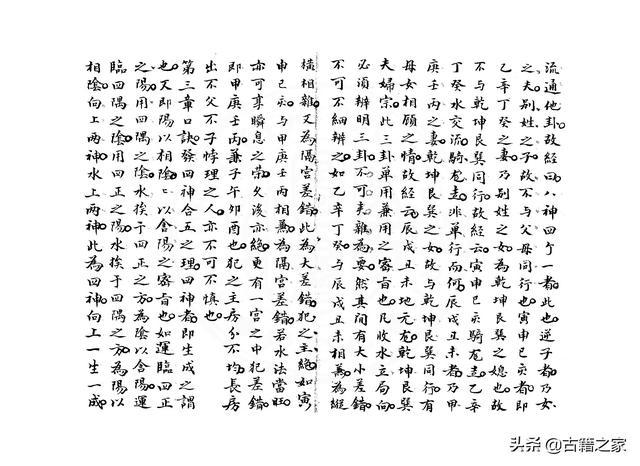 流通他卦故經曰八神四个一者此也逆子者乃女
之夫别姓之子故不与父母同行也寅申巳亥者即
乙辛丁癸之妻乃别姓之女為乾坤艮巽之媳也故
不与乾坤艮巽同行故經云寅申巳亥騎龍走乙辛
丁癸水交流騎龍走非單行而何辰戌丑未者乃甲
庚壬丙之妻乾坤艮巽之女故与乾坤艮巽同行有
母女相顧之情故經云辰戌丑未地元龍乾坤艮巽
夫婦宗此三卦單用兼用之密旨也凡收水立局向
必須辨明三卦不可夾雜為要然其間有大小差錯
不可不細辨之如乙辛丁癸与辰戌丑未相兼為縱
橫相雜又為隔宫差錯此為大差錯犯之主絕如寅
申巳亥与甲庚壬丙相兼為隔宫差錯若水法當旺
亦可享瞬息之榮久後亦絕更有一宫之中犯差錯
即甲庚壬丙兼子午卯酉也犯之主房分不均長房
出不父不子悖理之人亦不可不慎也
第三章口訣發四神合五之理四神者即生成之謂
也又即陽以相陰陰以含陽之密旨也如運臨四正
之陽用四隅之陰水挨于四正之方為陰以含陽運
臨四隅之陰用四正之陽水挨于四隅之方為陽以
相陰向上兩神水上兩神此為四神向上一生一成
头条 @古籍之家